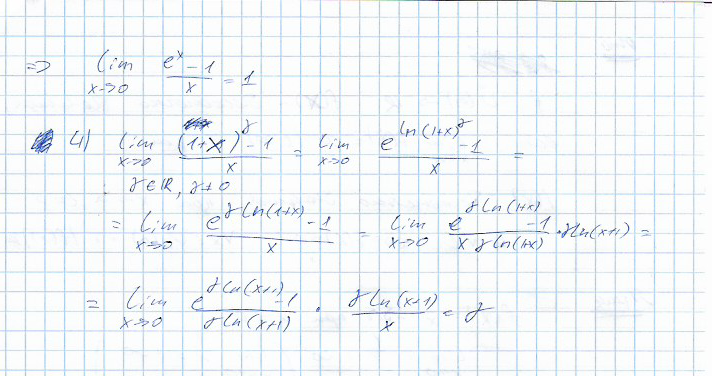 => lim_{x→0} (e^x - 1)/x = 1
4) lim_{x→0} ((1+x)^γ - 1)/x = lim_{x→0} (e^{ln(1+x)^γ} - 1)/x =
γ∈ℝ, γ≠0
= lim_{x→0} (e^{γ ln(1+x)} - 1)/x = lim_{x→0} (e^{γ ln(1+x)} - 1)/(x γ ln(1+x)) · γ ln(x+1) =
= lim_{x→0} (e^{γ ln(x+1)} - 1)/(γ ln(x+1)) · (γ ln(x+1))/x = γ